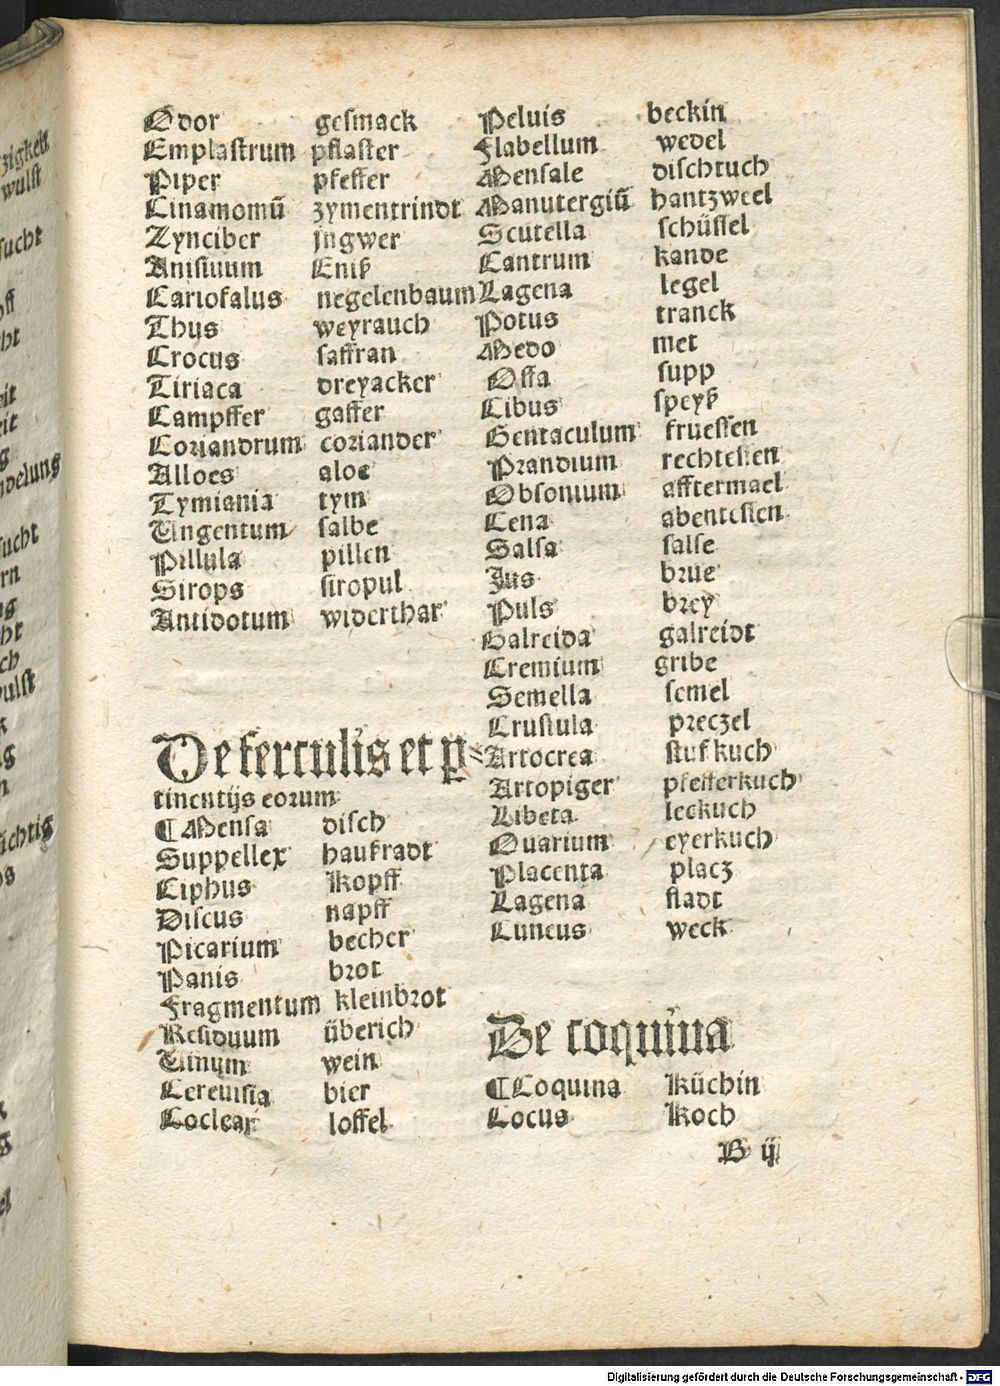 Odor gesmack
Emplastrum pflaster
Piper pfeffer
Cinamomū zymentrindt
Zynciber jngwer
Anisiuum Eniß
Cariofalus negelenbaum
Thus weyrauch
Crocus saffran
Tiriaca dreyacker
Campffer gaffer
Coriandrum coriander
Alloes aloe
Tymiania tym
Ungentum salbe
Pillula pillen
Sirops siropul
Antidotum widerthar
De ferculis et p-
tinentijs eorum
Mensa disch
Suppellex haußradt
Ciphus Kopff
Discus napff
Picarium becher
Panis brot
Fragmentum kleinbrot
Residuum überich
Uinum wein
Cereuisia bier
Coclear loffel
Peluis beckin
Flabellum wedel
Mensale dischtuch
Manutergiū hantzweel
Scutella schüssel
Cantrum kande
Lagena legel
Potus tranck
Medo met
Offa supp
Cibus speyß
Gentaculum fruessen
Prandium rechtessen
Obsonium afftermael
Cena abentessen
Salsa salse
Jus brue
Puls brey
Galreida galreidt
Cremium gribe
Semella semel
Crustula preczel
Artocrea
Artopiger pfefferkuch
Libeta leckuch
Ouarium eyerkuch
Placenta placz
Lagena fladt
Cuneus weck
De coquina
Coquina Küchin
Cocus Koch
B ij
Digitalisierung gefördert durch die Deutsche Forschungsgemeinschaft - DFG